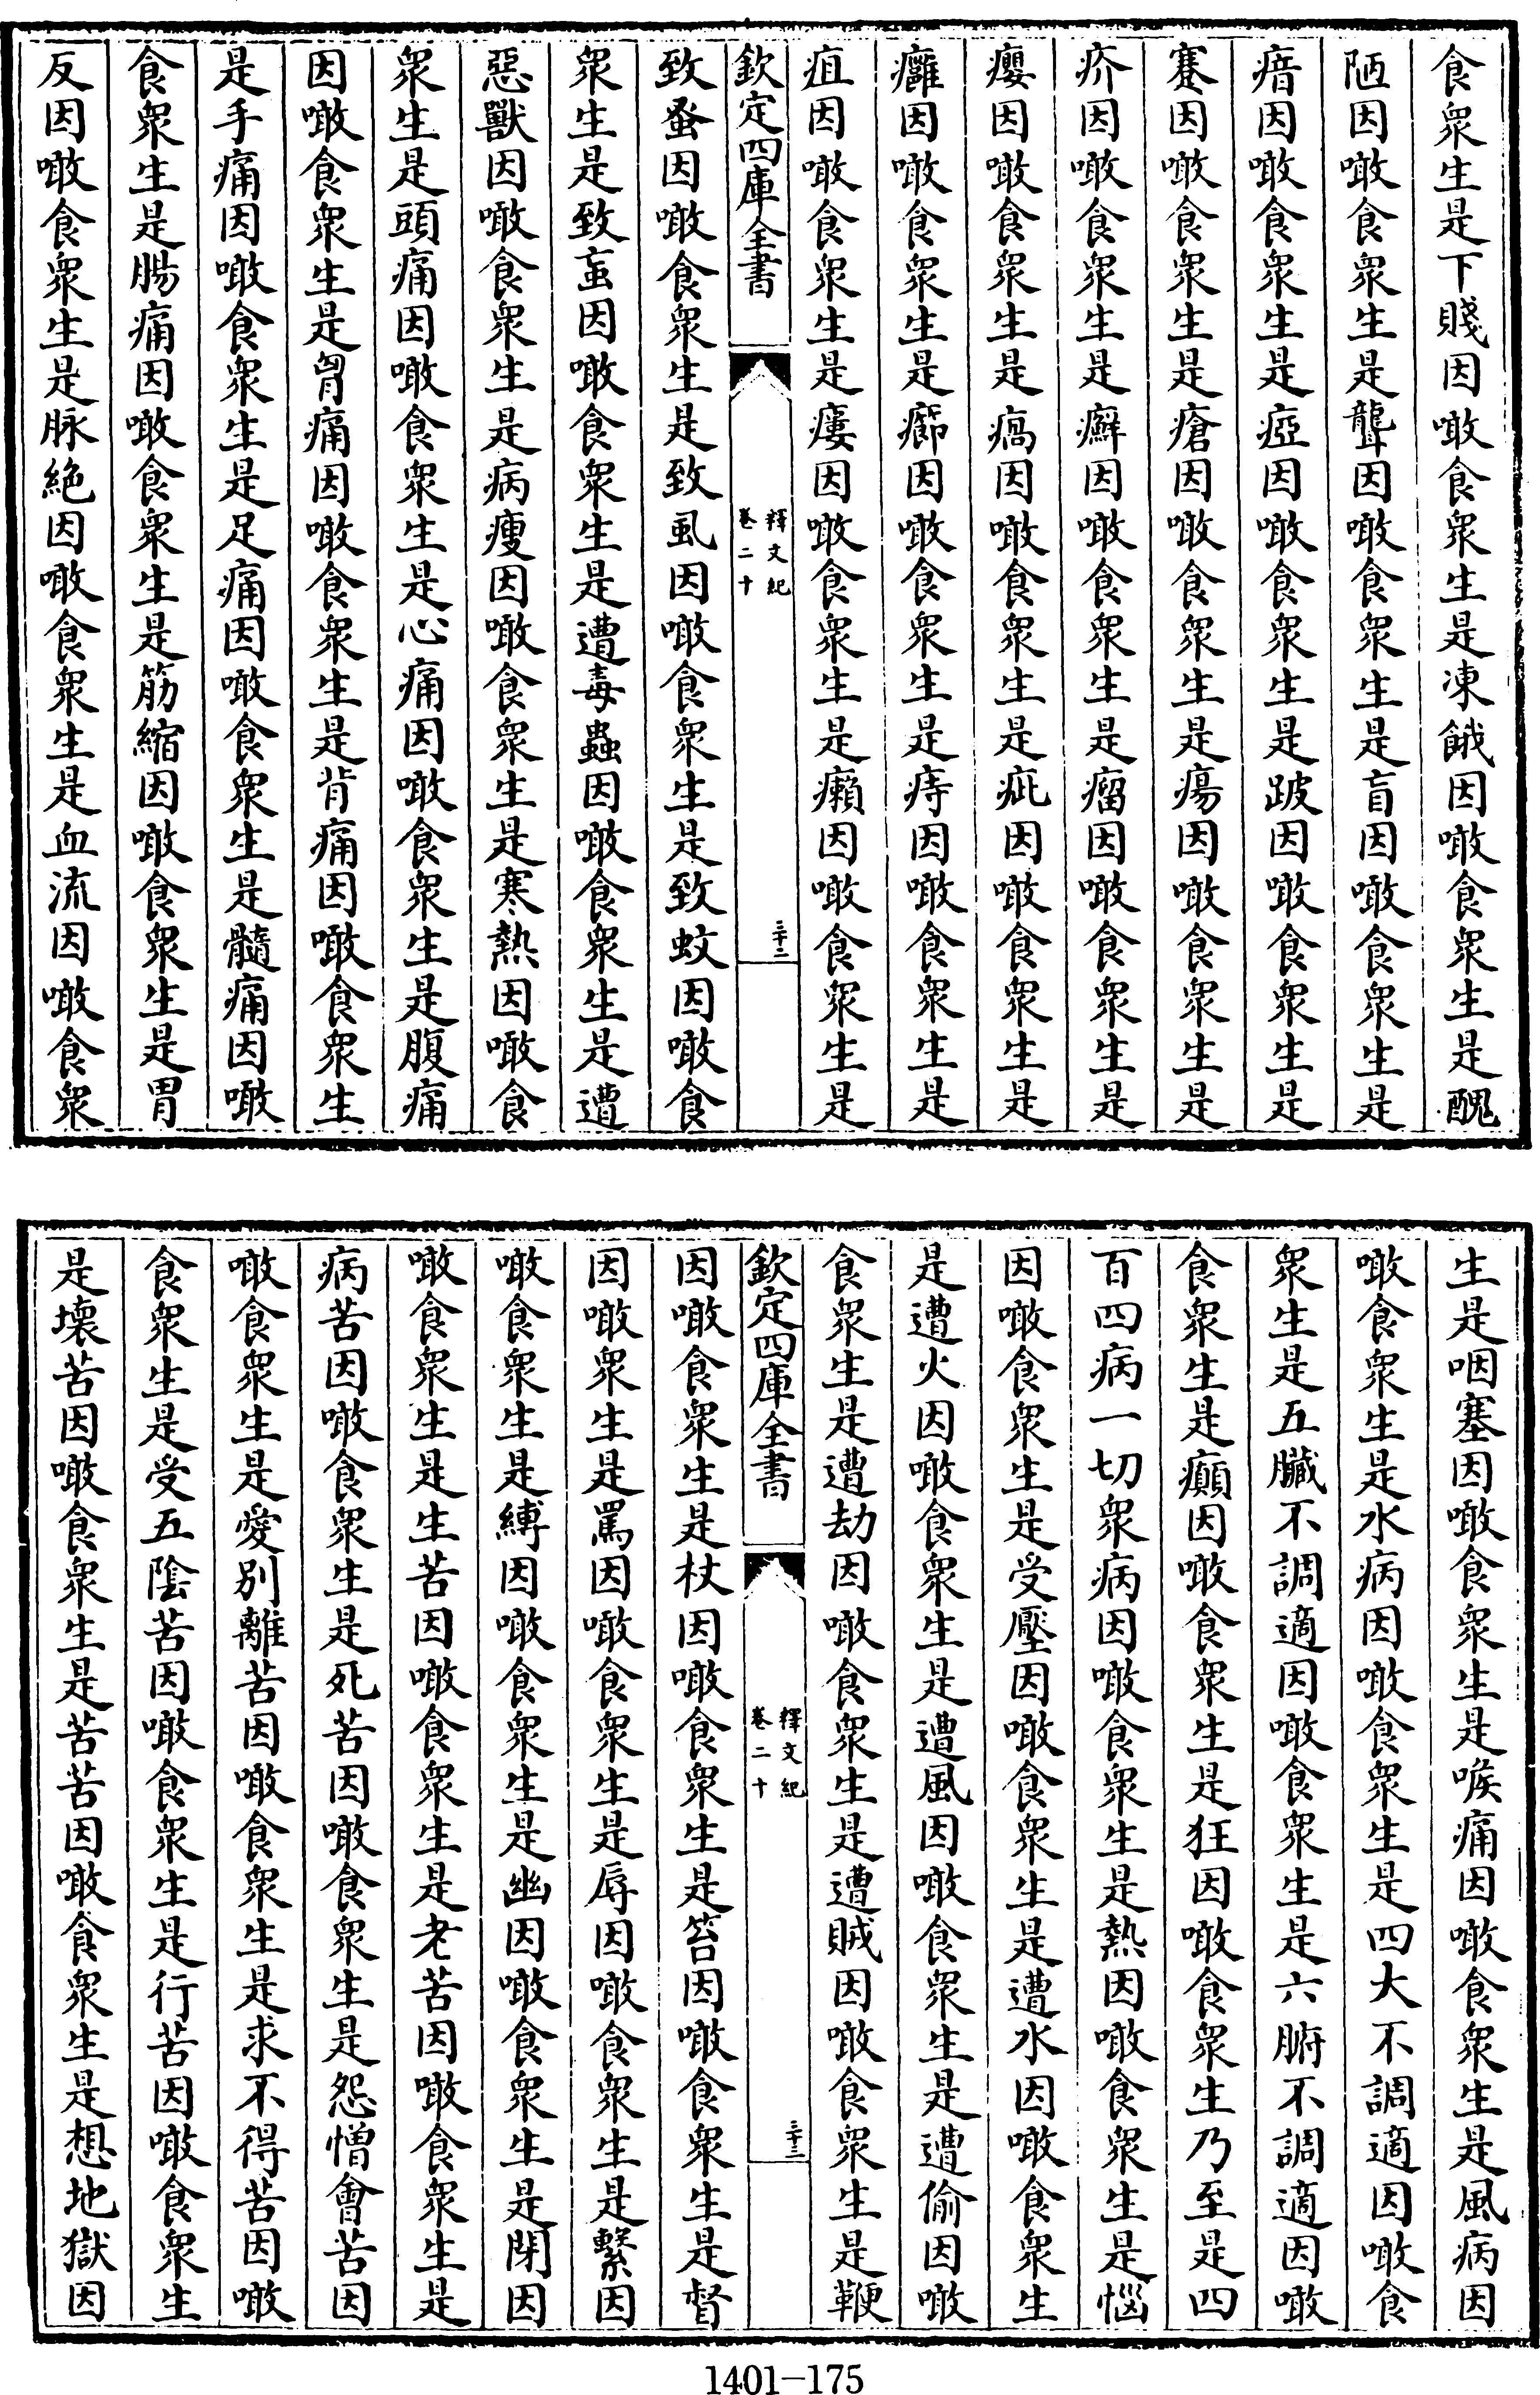 食衆生是下賤因噉食衆生是凍餓因噉食衆生是醜
陋因噉食衆生是聾因噉食衆生是盲因噉食衆生是
瘖因噉食衆生是瘂因噉食衆生是跛因噉食衆生是
蹇因噉食衆生是瘡因噉食衆生是瘍因噉食衆生是
疥因噉食衆生是癬因噉食衆生是瘤因噉食衆生是
癭因噉食衆生是瘑因噉食衆生是疵因噉食衆生是
癰因噉食衆生是癤因噉食衆生是痔因噉食衆生是
疽因噉食衆生是瘻因噉食衆生是癩因噉食衆生是
欽定四庫全書
釋文紀
卷二十
三十二
致蚤因噉食衆生是致虱因噉食衆生是致蚊因噉食
衆生是致蝱因噉食衆生是遭毒蟲因噉食衆生是遭
惡獸因噉食衆生是病瘦因噉食衆生是寒熱因噉食
衆生是頭痛因噉食衆生是心痛因噉食衆生是腹痛
因噉食衆生是胷痛因噉食衆生是背痛因噉食衆生
是手痛因噉食衆生是足痛因噉食衆生是髓痛因噉
食衆生是腸痛因噉食衆生是筋縮因噉食衆生是胃
反因噉食衆生是脉絶因噉食衆生是血流因噉食衆
生是咽塞因噉食衆生是喉痛因噉食衆生是風病因
噉食衆生是水病因噉食衆生是四大不調適因噉食
衆生是五臟不調適因噉食衆生是六腑不調適因噉
食衆生是癲因噉食衆生是狂因噉食衆生乃至是四
百四病一切衆病因噉食衆生是熱因噉食衆生是惱
因噉食衆生是受壓因噉食衆生是遭水因噉食衆生
是遭火因噉食衆生是遭風因噉食衆生是遭偷因噉
食衆生是遭劫因噉食衆生是遭賊因噉食衆生是鞭
欽定四庫全書
釋文紀
卷二十
三十三
因噉食衆生是杖因噉食衆生是笞因噉食衆生是督
因噉衆生是罵因噉食衆生是辱因噉食衆生是繫因
噉食衆生是縛因噉食衆生是幽因噉食衆生是閉因
噉食衆生是生苦因噉食衆生是老苦因噉食衆生是
病苦因噉食衆生是死苦因噉食衆生是怨憎會苦因
噉食衆生是愛別離苦因噉食衆生是求不得苦因噉
食衆生是受五陰苦因噉食衆生是行苦因噉食衆生
是壞苦因噉食衆生是苦苦因噉食衆生是想地獄因
1401-175